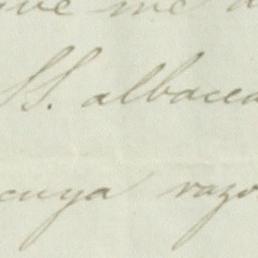 me
SS. albacea
cuya razo